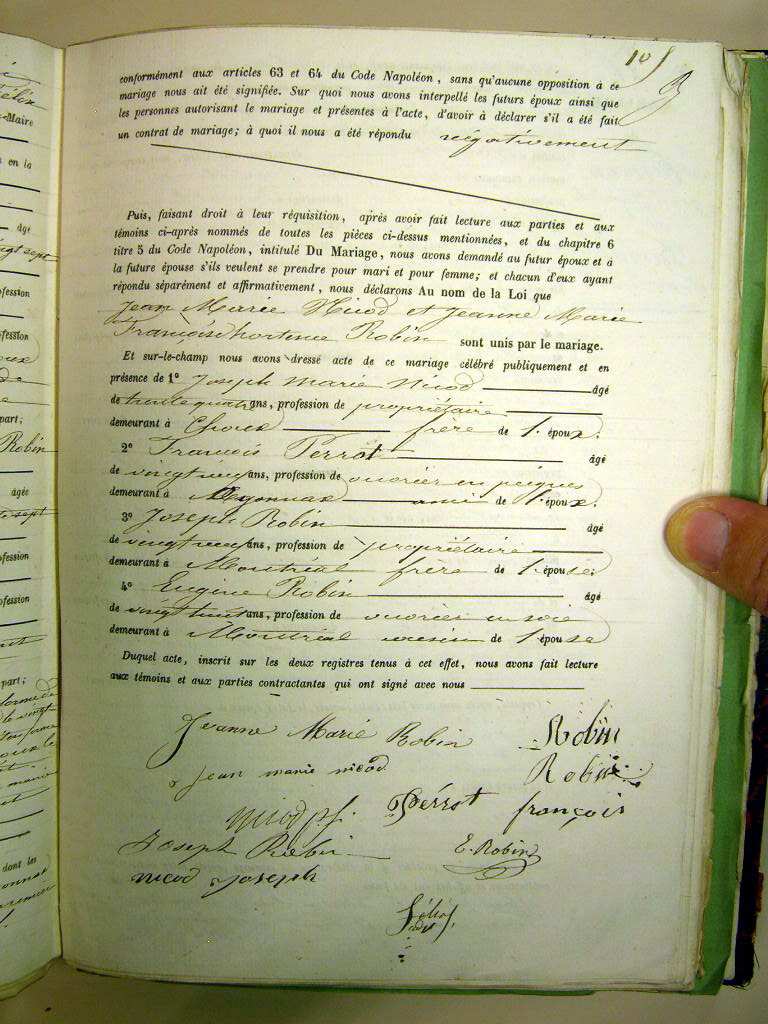 105
conformément aux articles 63 et 64 du Code Napoléon, sans qu'aucune opposition à ce
mariage nous ait été signifiée. Sur quoi nous avons interpellé les futurs époux ainsi que
les personnes autorisant le mariage et présentes à l'acte, d'avoir à déclarer s'il a été fait
un contrat de mariage; à quoi il nous a été répondu négativement
Puis, faisant droit à leur réquisition, après avoir fait lecture aux parties et aux
témoins ci-après nommés de toutes les pièces ci-dessus mentionnées, et du chapitre 6
titre 5 du Code Napoléon, intitulé Du Mariage, nous avons demandé au futur époux et à
la future épouse s'ils veulent se prendre pour mari et pour femme; et chacun d'eux ayant
répondu séparément et affirmativement, nous déclarons Au nom de la Loi que
Jean Marie Nicod et Jeanne Marie
Françoise hortence Robin sont unis par le mariage.
Et sur-le-champ nous avons dressé acte de ce mariage célébré publiquement et en
présence de 1° Joseph Marie Nicod âgé
de trente quatre ans, profession de propriétaire
demeurant à Choux frère de l'époux.
2° François Perrot âgé
de vingt neuf ans, profession de ouvrier en peignes
demeurant à Oyonnax ami de l'époux.
3° Joseph Robin âgé
de vingt neuf ans, profession de propriétaire
demeurant à Montréal frère de l'épouse.
4° Eugène Robin âgé
de vingt huit ans, profession de ouvrier en soie
demeurant à Montréal voisin de l'épouse
Duquel acte, inscrit sur les deux registres tenus à cet effet, nous avons fait lecture
aux témoins et aux parties contractantes qui ont signé avec nous
Jeanne Marie Robin Robin
jean marie nicod Robin
nicod Pérrot françois
Joseph Robin E. Robin
nicod joseph